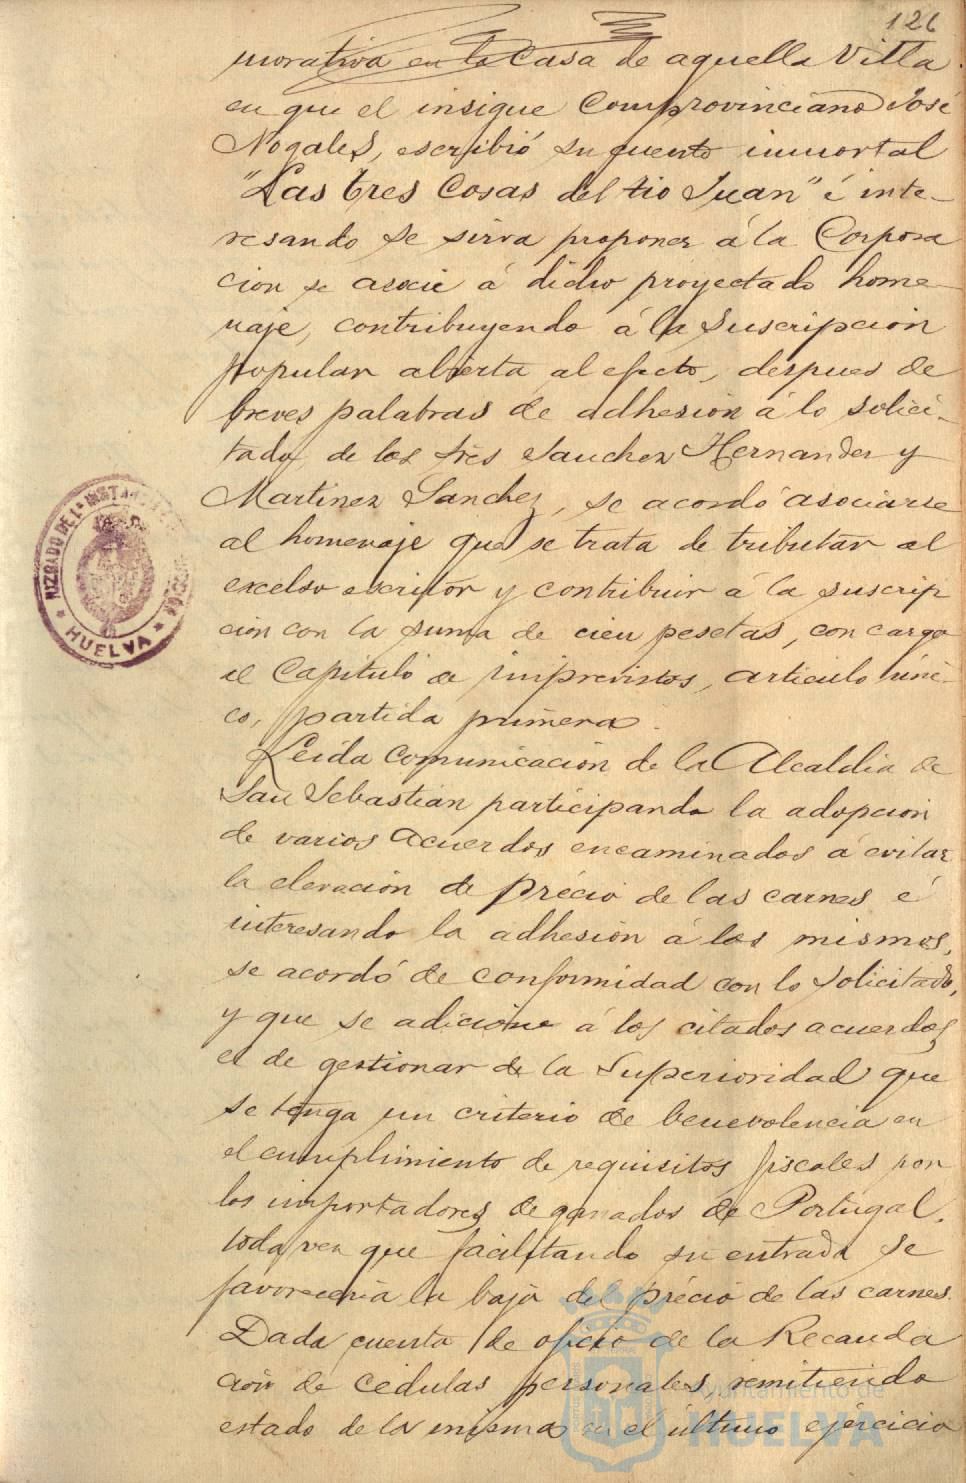 126
morativa en la Casa de aquella Villa
en que el insigne Comprovinciano José
Nogales, escribió su cuento inmortal
"Las tres Cosas del tio Juan" é inte-
resando se sirva proponer á la Corpora
cion se asocie á dicho proyectado home-
naje, contribuyendo á la suscripcion
popular abierta al efecto, despues de
breves palabras de adhesion á lo solici-
tado de los Srés Sanchez Hernandez y
Martinez Sanchez, se acordó asociarse
al homenaje que se trata de tributar al
excelso escritor y contribuir á la suscrip
cion con la suma de cien pesetas, con cargo
al Capitulo de imprevistos, articulo úni-
co, partida primera.
Leida comunicacion de la Alcaldia de
San Sebastian participando la adopcion
de varios acuerdos encaminados á evitar
la elevacion de précio de las carnes é
interesando la adhesion á los mismos,
se acordó de conformidad con lo solicitado,
y que se adicione á los citados acuerdos
el de gestionar de la Superioridad que
se tenga un criterio de benevolencia en
el cumplimiento de requisitos fiscales por
los importadores de ganados de Portugal,
toda vez que facilitando su entrada se
favoreceria la baja del précio de las carnes.
Dada cuenta de oficio de la Recauda
cion de cédulas personales remitiendo
estado de la misma en el último ejercicio
HUELVA
Ayuntamiento de
HUELVA